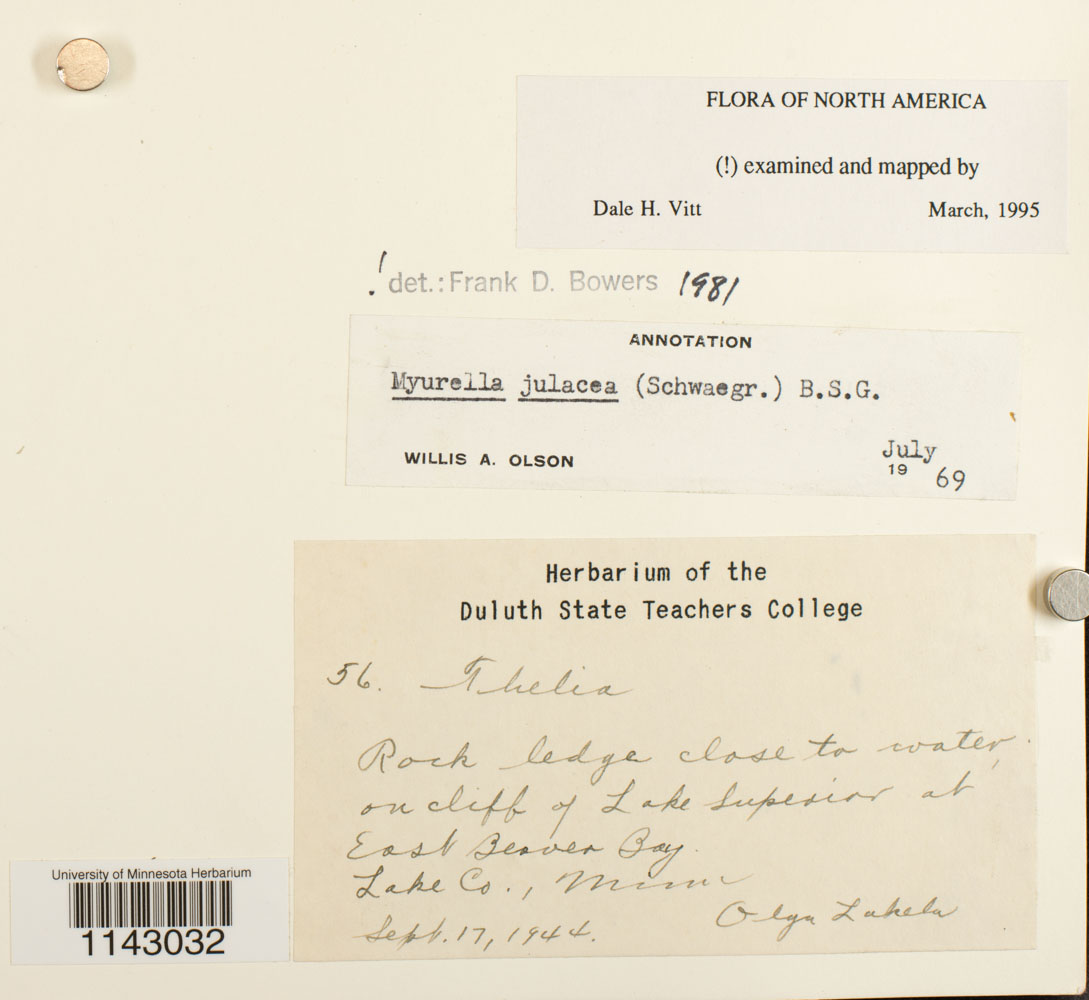 FLORA OF NORTH AMERICA
(!) examined and mapped by
Dale H. Vitt March, 1995
! det.: Frank D. Bowers 1981
ANNOTATION
Myurella julacea (Schwaegr.) B.S.G.
WILLIS A. OLSON July 19 69
Herbarium of the
Duluth State Teachers College
56. Thelia
Rock ledge close to water,
on cliff of Lake Superior at
East Beaver Bay.
Lake Co., Minn
Sept. 17, 1944. Olga Lakela
University of Minnesota Herbarium
1143032